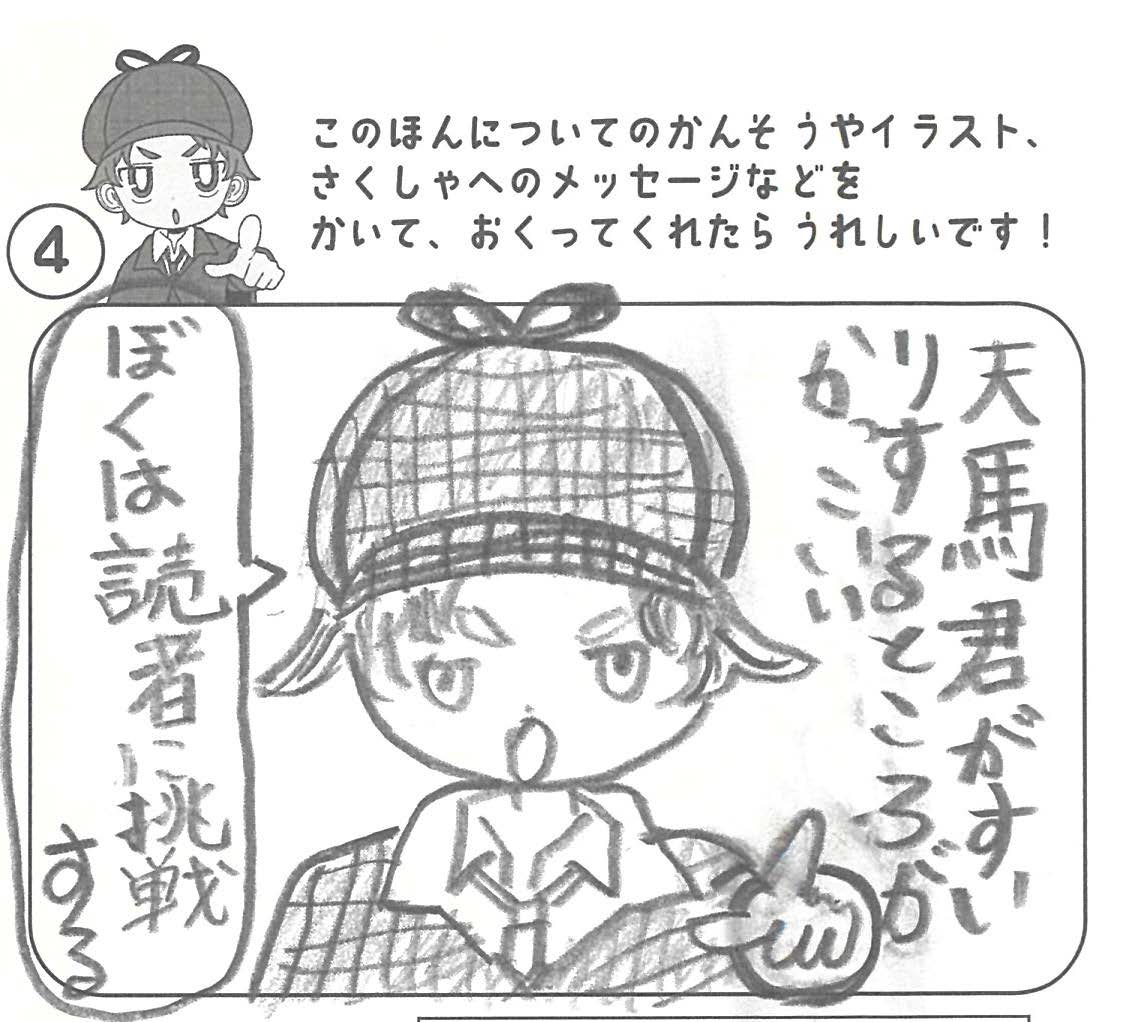 このほんについてのかんそうやイラスト、
さくしゃへのメッセージなどを
かいて、おくってくれたらうれしいです！
4
天馬君がすい
りするところが
かっこいい
ぼくは読者に挑戦
する